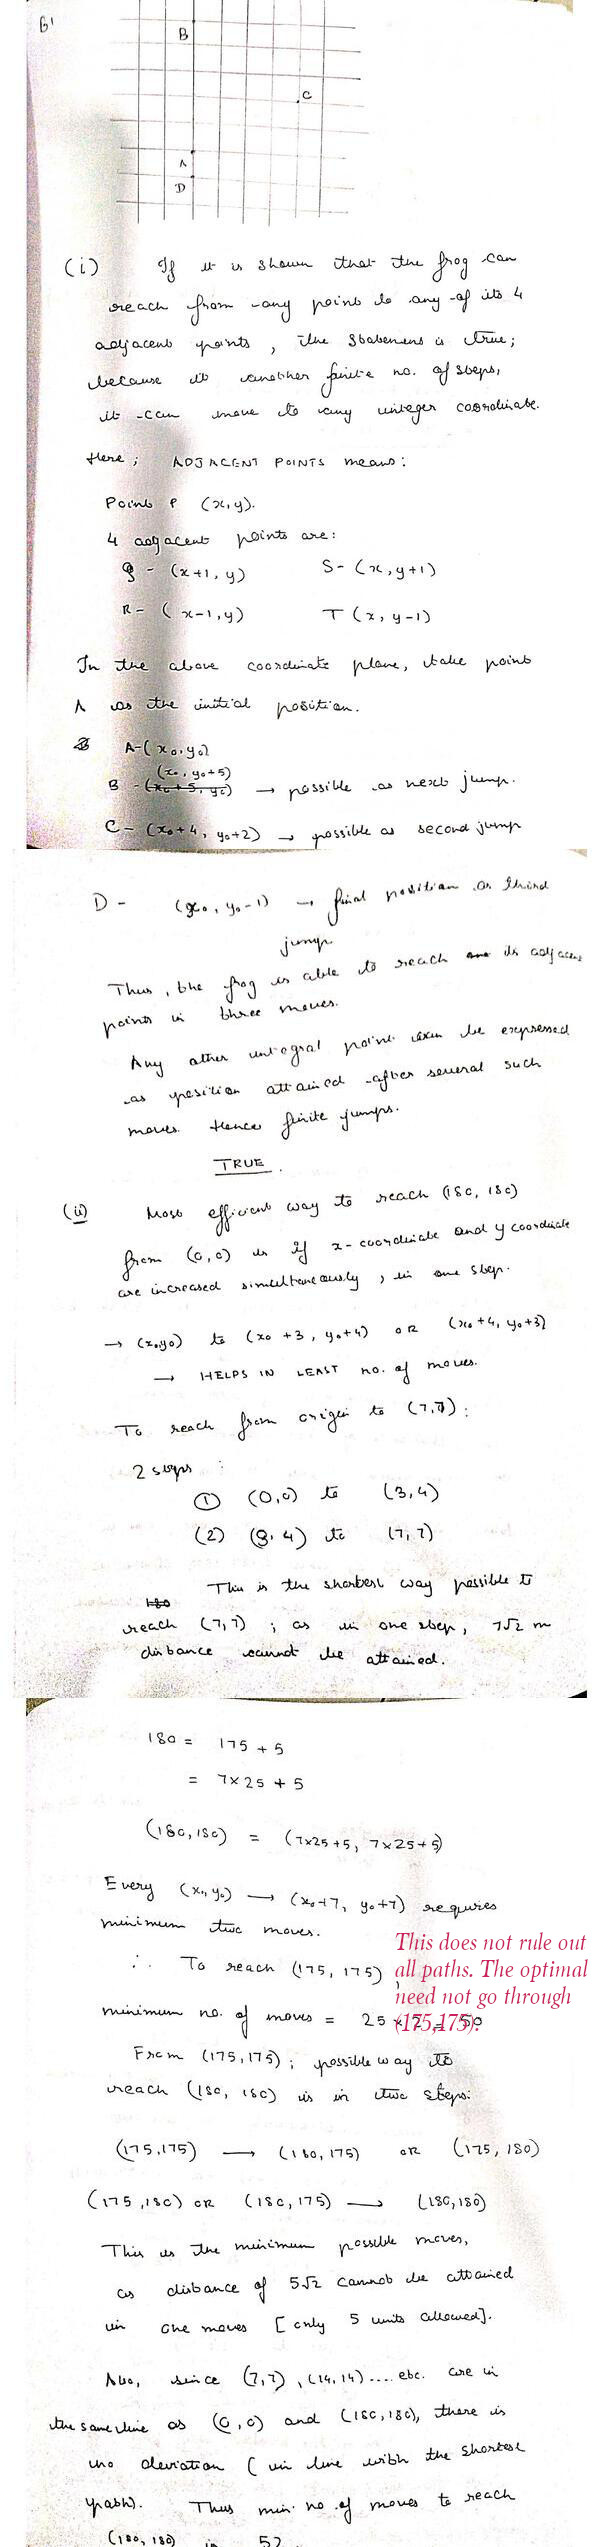 B1
B
C
A
D
(i) If it is shown that the frog can
reach from any point to any of its 4
adjacent points, the statement is true;
because it another finite no. of steps,
it can move to any integer coordinate.
Here; ADJACENT POINTS means:
Point P (x,y).
4 adjacent points are:
Q - (x+1, y) S - (x, y+1)
R - (x-1, y) T (x, y-1)
In the above coordinate plane, take point
A as the initial position.
A-(x₀, y₀)
(x₀, y₀+5)
B - (x₀+5, y₀) → possible as next jump.
C - (x₀+4, y₀+2) → possible as second jump
D - (x₀, y₀-1) → final position as third
jump
Thus, the frog is able to reach its adjacent
points in three moves.
Any other integral point can be expressed
as position attained after several such
moves. Hence finite jumps.
TRUE.
(ii) Most efficient way to reach (180, 180)
from (0,0) is if x-coordinate and y coordinate
are increased simultaneously, in one step.
→ (x₀y₀) to (x₀+3, y₀+4) OR (x₀+4, y₀+3)
→ HELPS IN LEAST no. of moves.
To reach from origin to (7,7):
2 steps :
① (0,0) to (3,4)
(2) (3,4) to (7,7)
180 This is the shortest way possible to
reach (7,7); as in one step, 7√2 m
distance cannot be attained.
180 = 175 + 5
= 7×25 + 5
(180, 180) = (7×25+5, 7×25+5)
Every (x₀, y₀) → (x₀+7, y₀+7) requires
minimum two moves.
This does not rule out
all paths. The optimal
need not go through
(175,175).
∴ To reach (175, 175),
minimum no. of moves = 25×2 = 50
From (175,175); possible way to
reach (180, 180) is in two steps:
(175,175) → (180,175) OR (175, 180)
(175,180) OR (180,175) → (180,180)
This is the minimum possible moves,
as distance of 5√2 cannot be attained
in one moves [only 5 units allowed].
Also, since (7,7), (14,14).... etc. are in
the same line as (0,0) and (180,180), there is
no deviation (in line with the shortest
path). Thus min. no. of moves to reach
(180, 180) is 52